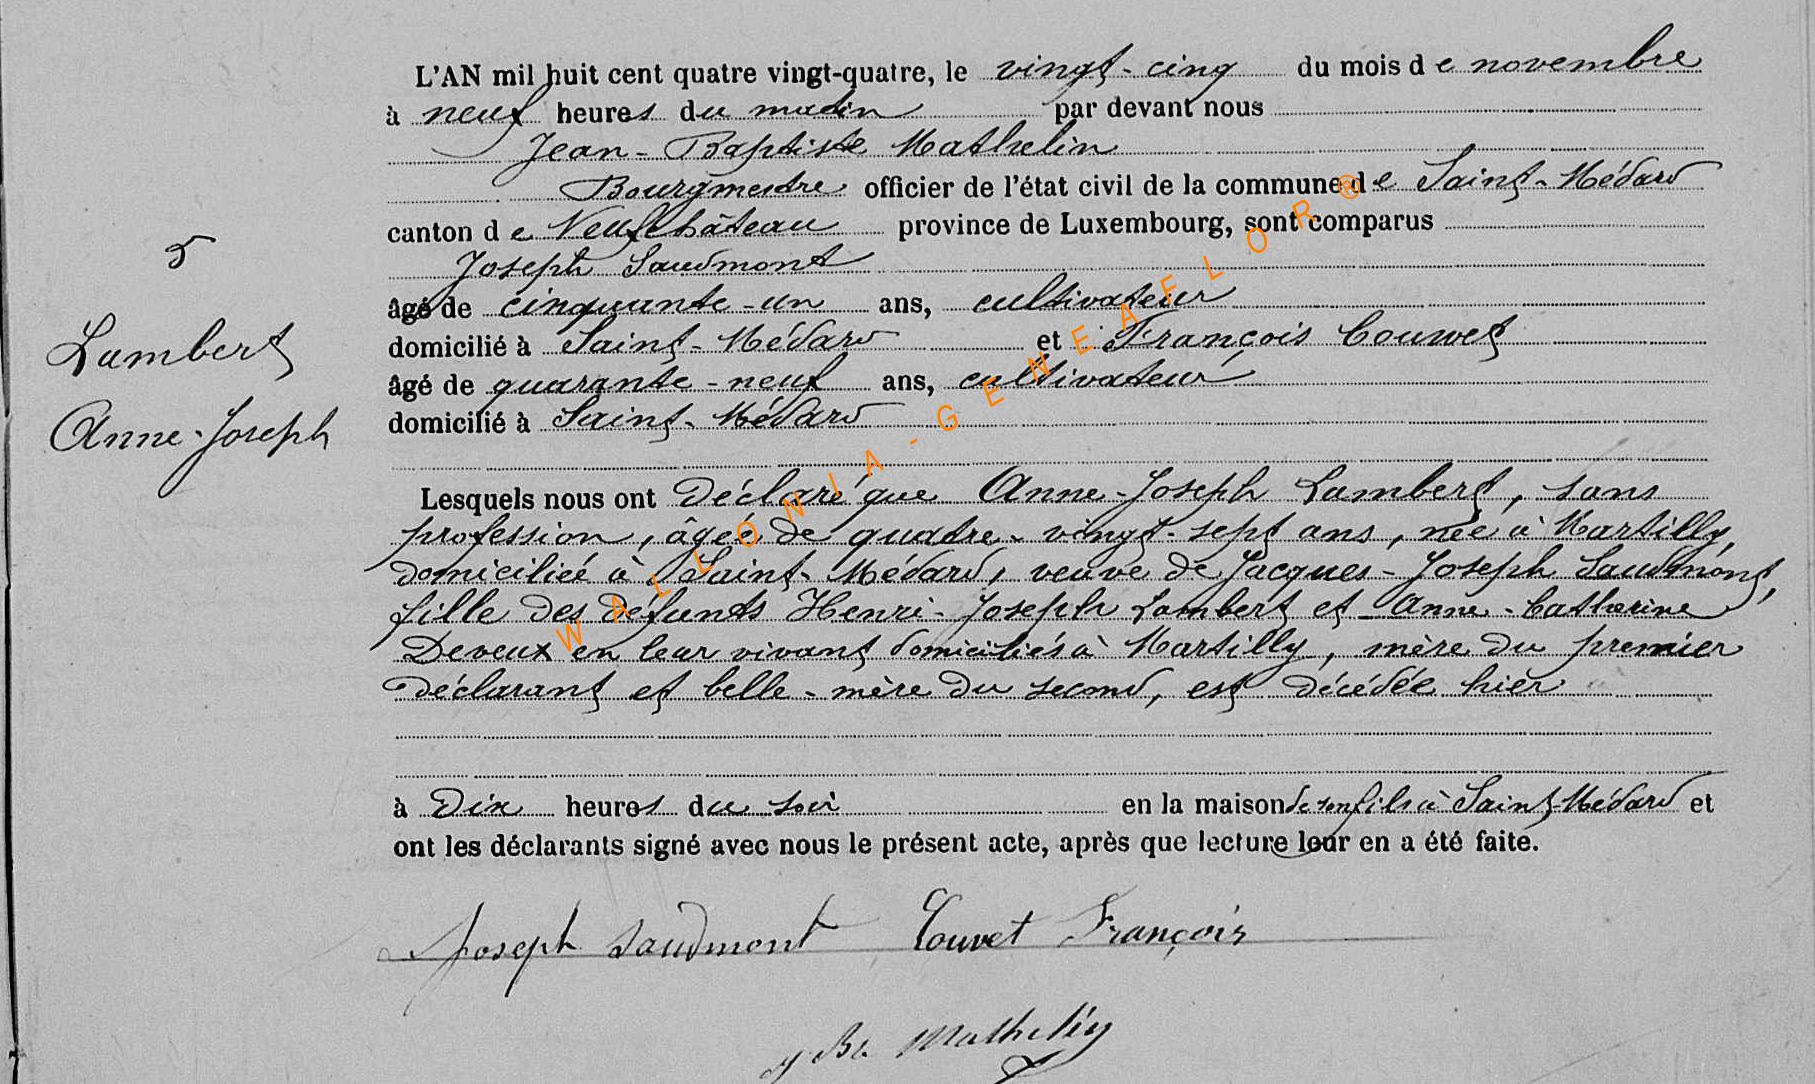 L'AN mil huit cent quatre vingt-quatre, le vingt-cinq du mois de novembre
à neuf heures du matin par devant nous
Jean-Baptiste Mathelin
Bourgmestre officier de l'état civil de la commune de Saint-Médard
canton de Neufchâteau province de Luxembourg, sont comparus
5
Joseph Saudmont
âgé de cinquante-un ans, cultivateur
Lambert
domicilié à Saint-Médard et François Couvet
âgé de quarante-neuf ans, cultivateur
Anne-Joseph
domicilié à Saint-Médard
Lesquels nous ont déclaré que Anne-Joseph Lambert, sans
profession, âgée de quatre-vingt-sept ans, née à Martilly,
domiciliée à Saint-Médard, veuve de Jacques-Joseph Saudmont,
fille des defunts Henri-Joseph Lambert et Anne-Catherine
Deveux en leur vivant domiciliés à Martilly, mère du premier
déclarant et belle-mère du second, est décédée hier
à dix heures du soir en la maison de son fils à Saint-Médard et
ont les déclarants signé avec nous le présent acte, après que lecture leur en a été faite.
Joseph Saudmont Couvet François
J Bte Mathelin
WALLONIA-GENEAFLOR®